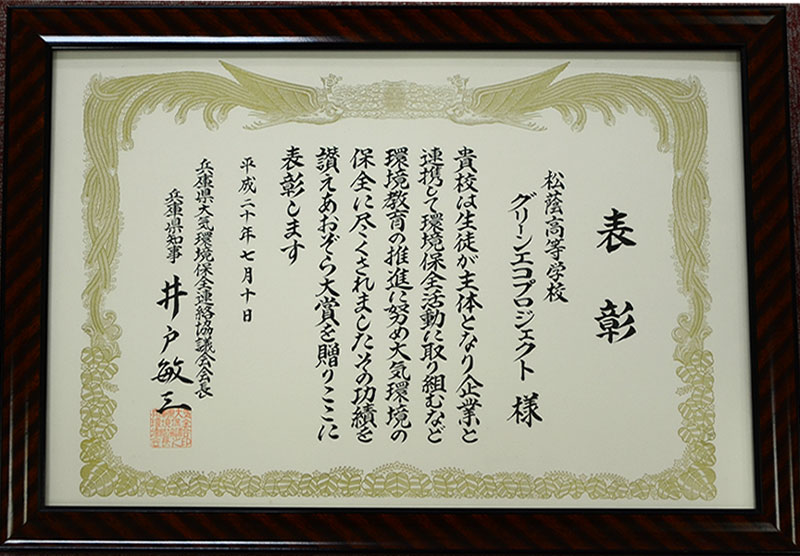 表彰
松蔭高等学校
グリーンエコプロジェクト 様
貴校は生徒が主体となり企業と
連携して環境保全活動に取り組むなど
環境教育の推進に努め大気環境の
保全に尽くされましたその功績を
讃えあおぞら大賞を贈りここに
表彰します
平成二十年七月十日
兵庫県大気環境保全連絡協議会会長
兵庫県知事 井戸敏三